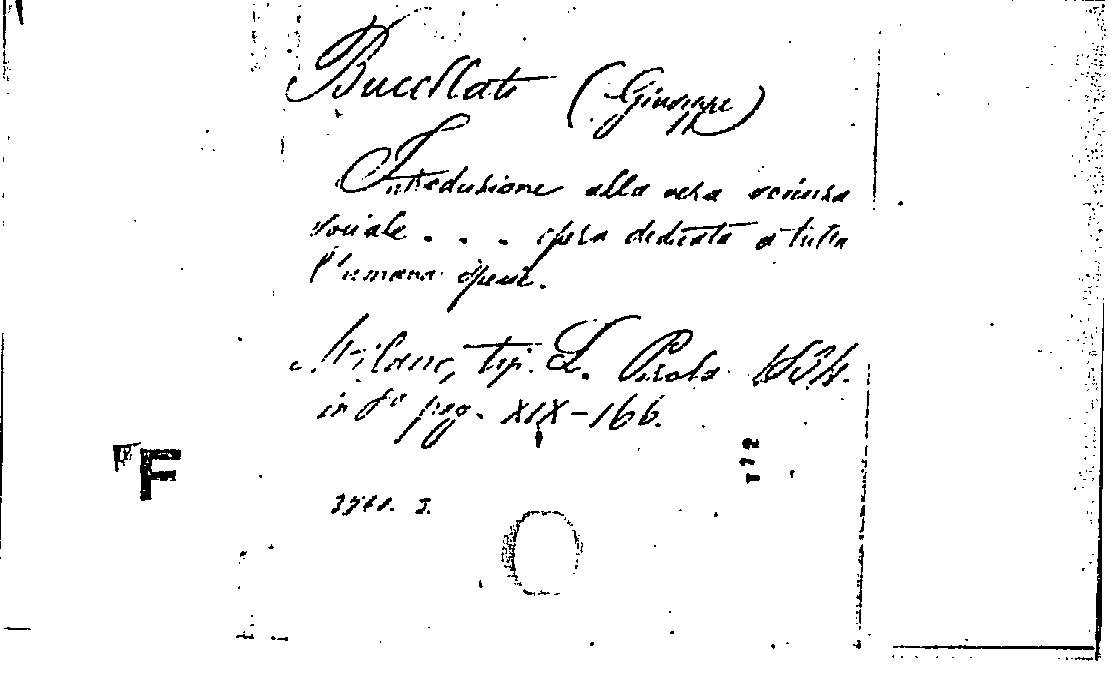 Buccellati (Giuseppe)
Introduzione alla vera scienza
sociale . . . opera dedicata a tutta
l'umana specie.
Milano, tip. L. Pirola 1834.
in 8º pag. XIX-166.
F